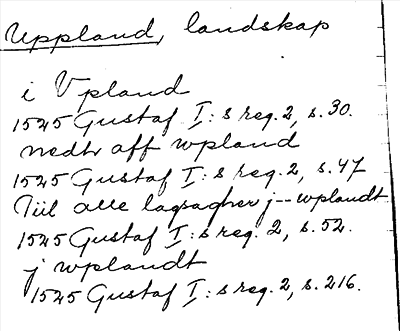 Uppland, landskap
i Vpland
1525 Gustaf I:s reg. 2, s. 30.
nedh aff wpland
1525 Gustaf I:s reg. 2, s. 47
Tiil alle lagsagher j -- wplandt
1525 Gustaf I:s reg. 2, s. 52.
j wplandt
1525 Gustaf I:s reg. 2, s. 216.